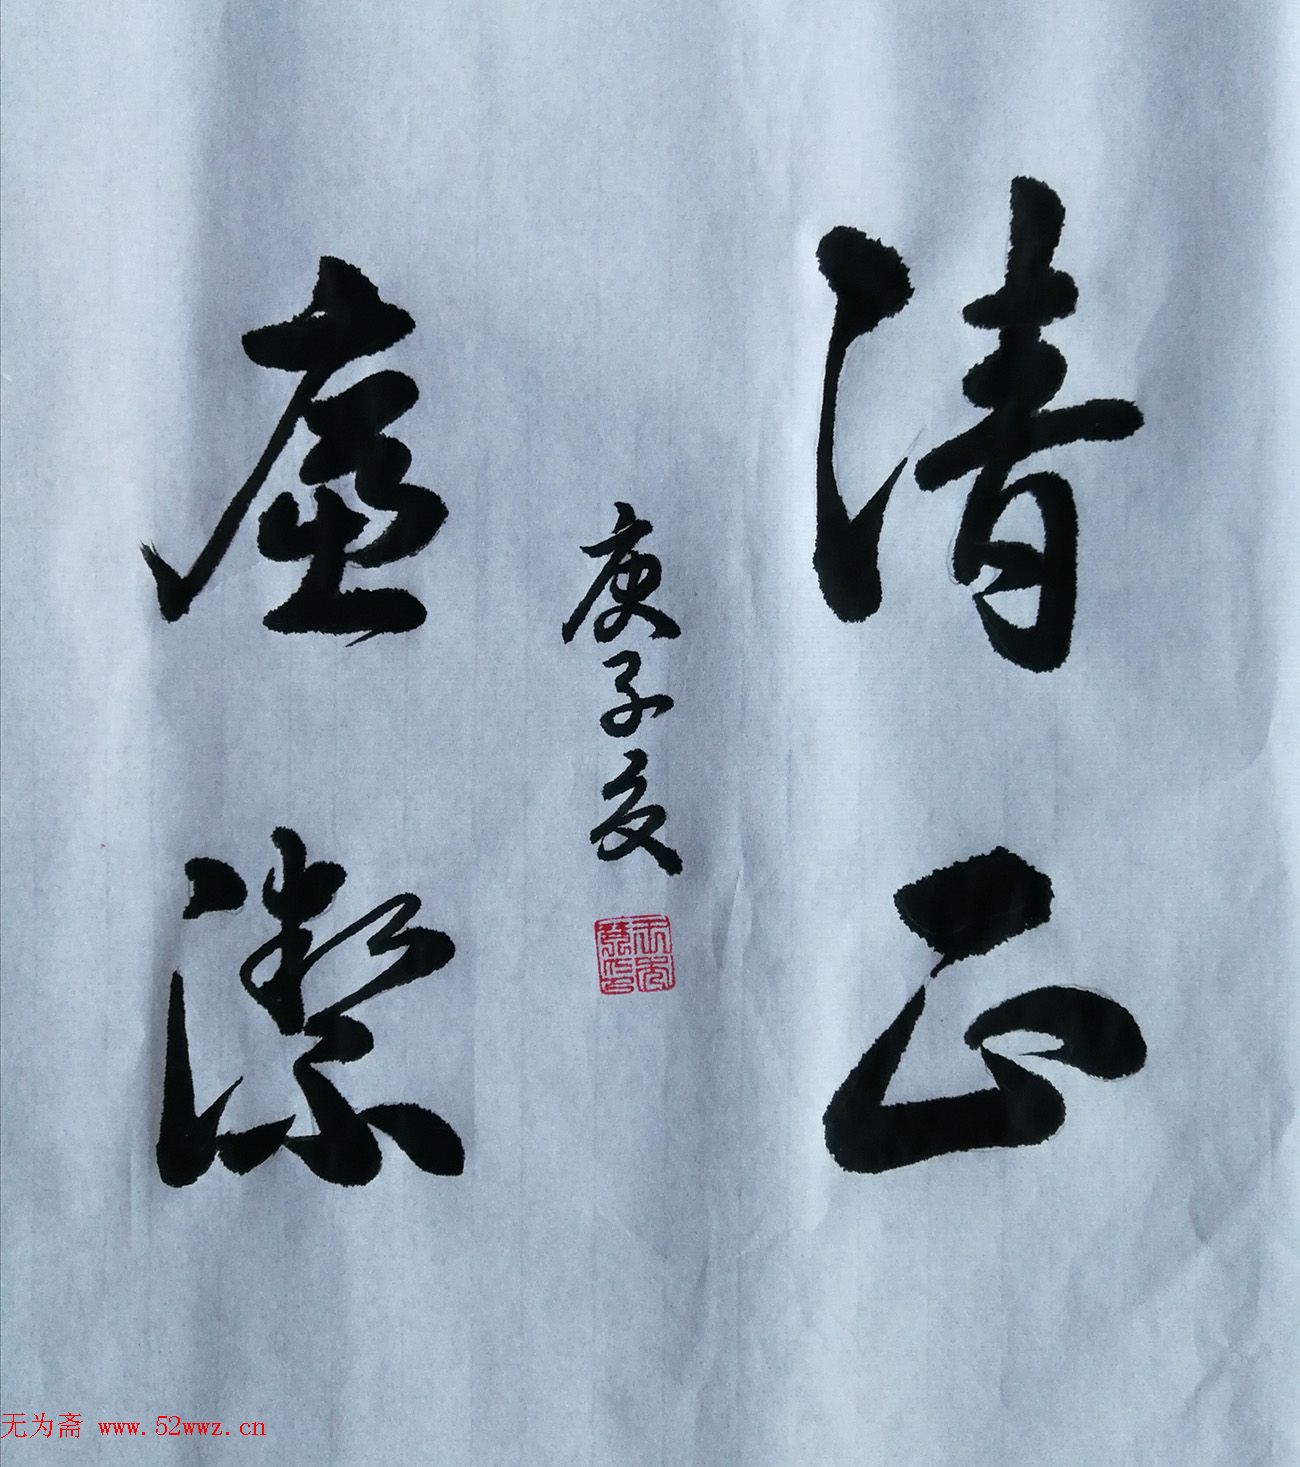 清正
廉潔
庚子夏
无为斋 www.52wwz.cn